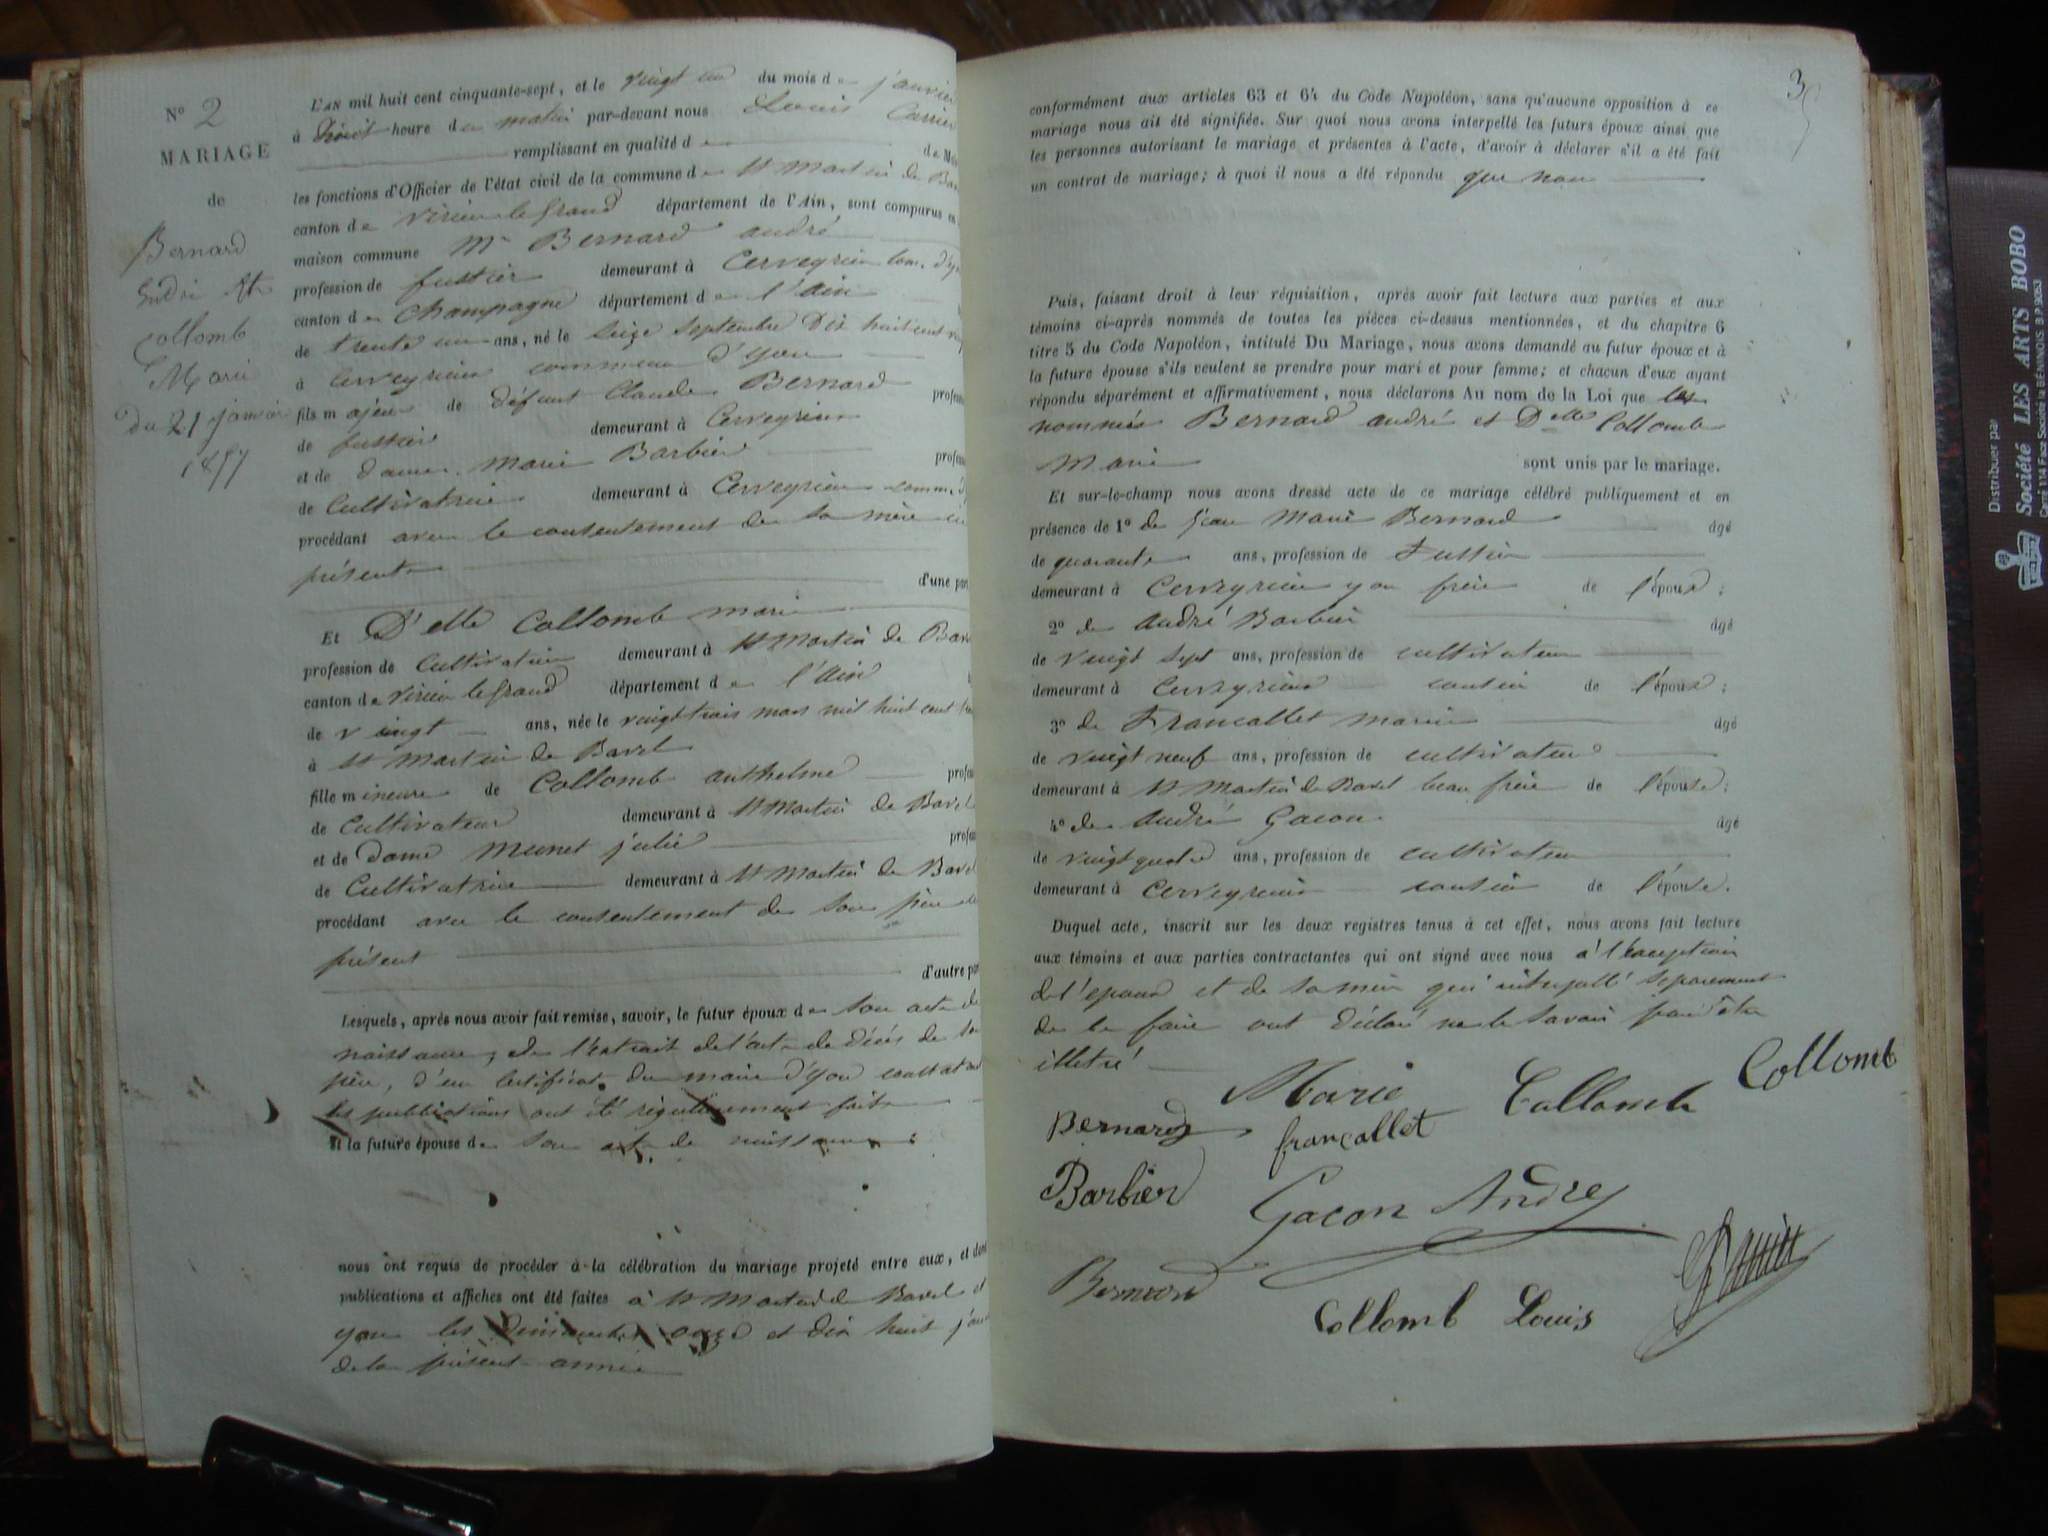 N° 2
MARIAGE
de
Bernard
André et
Collomb
Marie
du 21 janvier
1857
L'AN mil huit cent cinquante-sept, et le vingt un du mois de janvier
à heure du matin par-devant nous Louis Carrier
remplissant en qualité d de
les fonctions d'Officier de l'état civil de la commune de St Martin de
canton de Virieu le Grand département de l'Ain, sont comparus en
maison commune Mr Bernard andré
profession de fustier demeurant à Cerveyrieu
canton de Champagne département de l'Ain
de trente un ans, né le seize Septembre Dix huit cent
à Cerveyrieu commune d'yon
fils majeur de défunt Claude Bernard
de fustier demeurant à Cerveyrieu
et de dame Marie Barbier
de Cultivatrice demeurant à Cerveyrieu
procédant avec le consentement de sa mère
présente d'une
Et D'elle Collomb marie
profession de Cultivatrice demeurant à St Martin de
canton de Virieu le Grand département de l'Ain
de vingt ans, née le vingt trois mars mil huit cent
à St Martin de Bavel
fille mineure de Collomb anthelme
de Cultivateur demeurant à St Martin de Bavel
et de Dame Munet julie
de Cultivatrice demeurant à St Martin de Bavel
procédant avec le consentement de son père
présent d'autre
Lesquels, après nous avoir fait remise, savoir, le futur époux de son acte de
naissance, de l'extrait de l'acte de décès de son
père, d'un certificat du maire d'yon constatant
les publications ont été régulièrement faites
et la future épouse de son acte de naissance
nous ont requis de procéder à la célébration du mariage projeté entre eux, et dont
publications et affiches ont été faites à St Martin de Bavel et
yon les Dimanches onze et dix huit
de la présente année
3
conformément aux articles 63 et 64 du Code Napoléon, sans qu'aucune opposition à ce
mariage nous ait été signifiée. Sur quoi nous avons interpellé les futurs époux ainsi que
les personnes autorisant le mariage et présentes à l'acte, d'avoir à déclarer s'il a été fait
un contrat de mariage; à quoi il nous a été répondu que non
Puis, faisant droit à leur réquisition, après avoir fait lecture aux parties et aux
témoins ci-après nommés de toutes les pièces ci-dessus mentionnées, et du chapitre 6
titre 5 du Code Napoléon, intitulé Du Mariage, nous avons demandé au futur époux et à
la future épouse s'ils veulent se prendre pour mari et pour femme; et chacun d'eux ayant
répondu séparément et affirmativement, nous déclarons Au nom de la Loi que les
nommés Bernard andré et Delle Collomb
Marie sont unis par le mariage.
Et sur-le-champ nous avons dressé acte de ce mariage célébré publiquement et en
présence de 1° de jean Marie Bernard âgé
de quarante ans, profession de Fustier
demeurant à Cerveyrieu yon frère de l'époux;
2° de André Barbier âgé
de vingt sept ans, profession de cultivateur
demeurant à Cerveyrieu cousin de l'époux;
3° de Francallet marie âgé
de vingt neuf ans, profession de cultivateur
demeurant à St Martin de Bavel beau frère de l'épouse;
4° de André Gacon âgé
de vingt quatre ans, profession de cultivateur
demeurant à Cerveyrieu cousin de l'épouse.
Duquel acte, inscrit sur les deux registres tenus à cet effet, nous avons fait lecture
aux témoins et aux parties contractantes qui ont signé avec nous à l'exception
de l'epouse et de sa mère qui séparement
de le faire ont déclaré ne le savoir pour être
illetré
Bernard Marie Collomb Collomb
françallet
Barbier Gacon André
Bernard
Collomb Louis
Distribuer par
Société LES ARTS BOBO